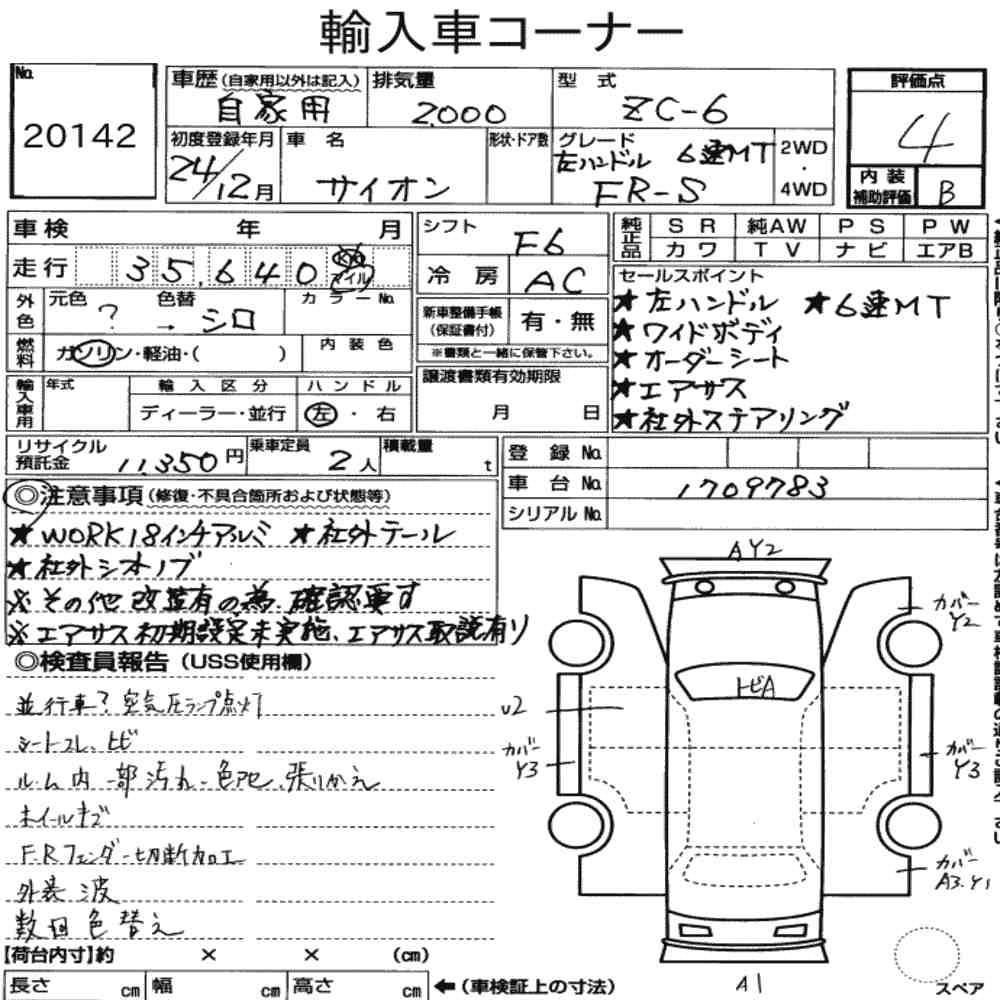 輸入車コーナー
No.
20142
車歴 (自家用以外は記入) 自家用
排気量 2,000
型 式 ZC-6
評価点 4
初度登録年月 24/12月
車 名 サイオン
形状・ドア数
グレード 左ハンドル 6速MT FR-S
2WD ・ 4WD
内装補助評価 B
車検 年 月
走行 35,640 km マイル
外色 元色 ? 色替 → シロ カラーNo.
燃料 ガソリン・軽油・( ) 内装色
輸入車用 年式 輸入区分 ディーラー・並行 ハンドル 左・右
シフト F6
冷房 AC
新車整備手帳 (保証書付) 有・無
※書類と一緒に保管下さい。
譲渡書類有効期限
月 日
純正品 SR 純AW PS PW
カワ TV ナビ エアB
セールスポイント
★左ハンドル ★6速MT
★ワイドボディ
★オーダーシート
★エアサス
★社外ステアリング
リサイクル預託金 11,350円
乗車定員 2人
積載量 t
登録 No.
車台 No. 1709783
シリアル No.
◎注意事項 (修復・不具合箇所および状態等)
★WORK18インチアルミ ★社外テール
★社外シフトノブ
※その他改造有の為、確認要す
※エアサス初期設定未実施、エアサス取説有り
◎検査員報告 (USS使用欄)
並行車? 空気圧ランプ点灯
シートスレ、トビ
ルーム内一部汚れ、色アセ、張りかえ
ホイールキズ
F.Rフェンダー切断加工
外装 波
数回色替え
AY2
カバー Y2
トビA
U2
カバー Y3
カバー Y3
カバー A3.Y1
A1
スペア
【荷台内寸】約 × × (cm)
長さ cm 幅 cm 高さ cm ←(車検証上の寸法)